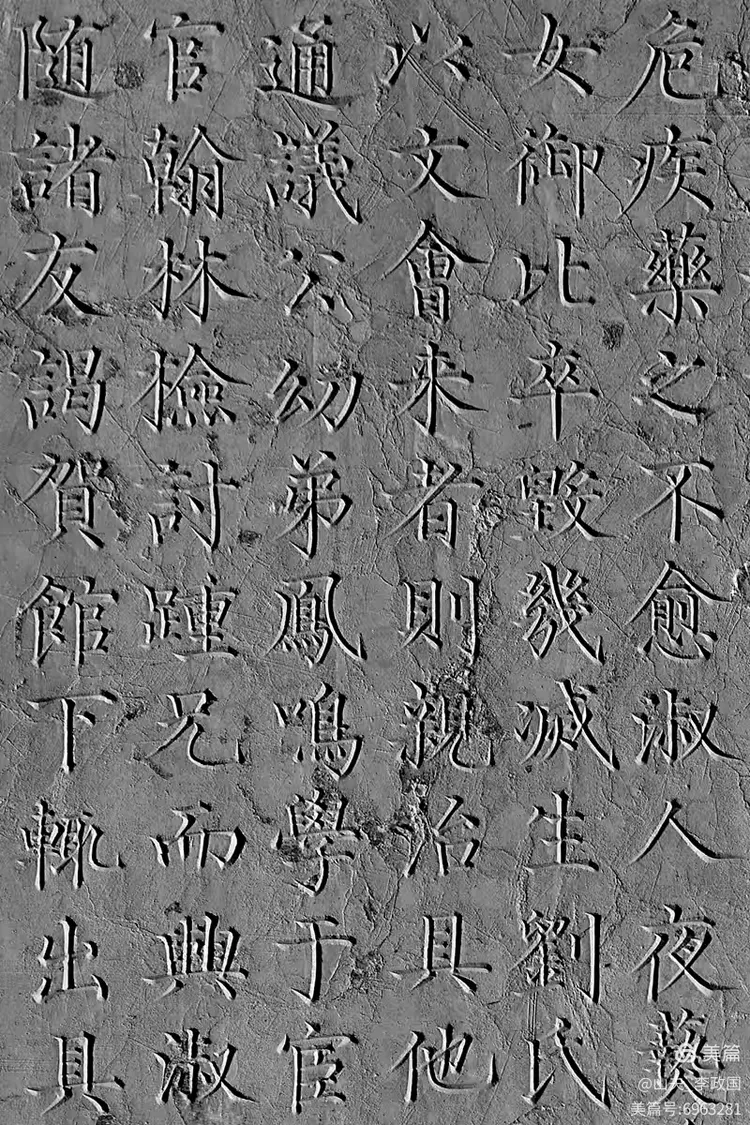 危疾藥之不愈淑人夜爇
女御比卒毀幾滅生劉氏
以文會来者則親治具他
通議公幼弟鳳鳴學于官
官翰林檢討踵兄而興淑
随諸友謁賀館下輙出具
美篇
李政国
美篇号:6963281